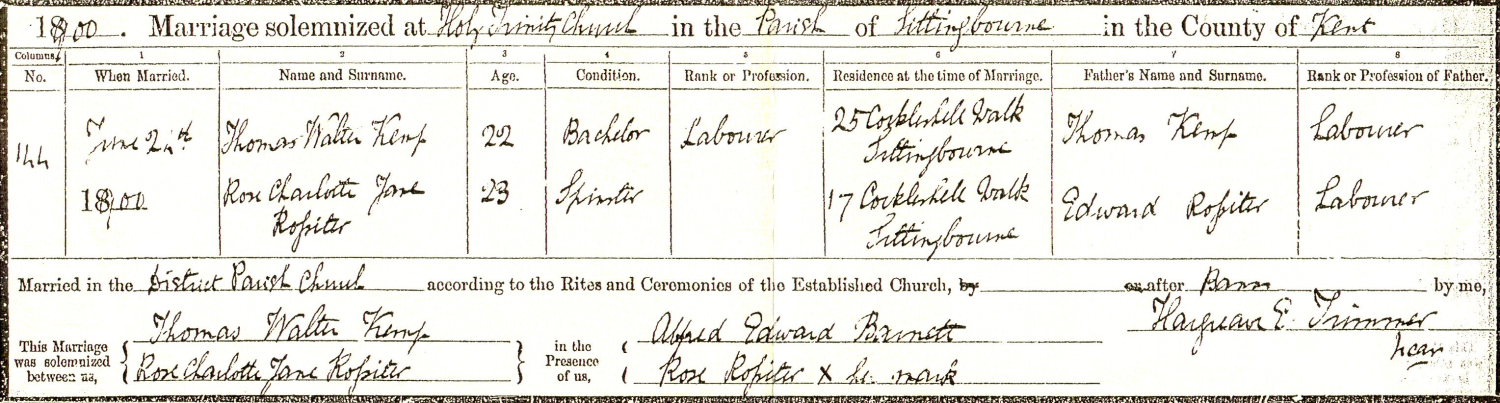 1900. Marriage solemnized at Holy Trinity Church in the Parish of Sittingbourne in the County of Kent
Columns 1 2 3 4 5 6 7 8
No. When Married. Name and Surname. Age. Condition. Rank or Profession. Residence at the time of Marriage. Father's Name and Surname. Rank or Profession of Father.
144 June 24th Thomas Walter Kemp 22 Bachelor Labourer 25 Cockleshell Walk Sittingbourne Thomas Kemp Labourer
1900 Rose Charlotte Jane Rossiter 23 Spinster 17 Cockleshell Walk Sittingbourne Edward Rossiter Labourer
Married in the District Parish Church according to the Rites and Ceremonies of the Established Church, by or after Banns by me,
This Marriage was solemnized between us, Thomas Walter Kemp in the Presence of us, Alfred Edward Barnett Hargreave E. Trimmer
Rose Charlotte Jane Rossiter Rose Rossiter X her mark Vicar